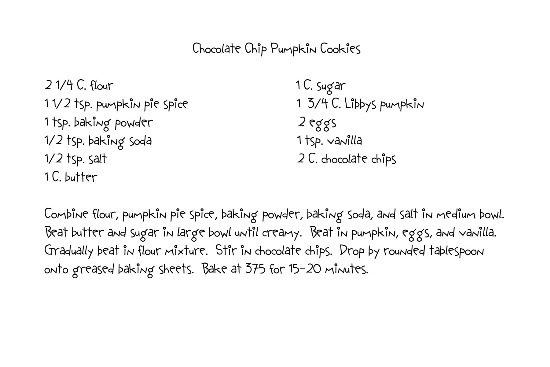 Chocolate Chip Pumpkin Cookies
2 1/4 C. flour
1 1/2 tsp. pumpkin pie spice
1 tsp. baking powder
1/2 tsp. baking soda
1/2 tsp. salt
1 C. butter
1 C. sugar
1 3/4 C. Libbys pumpkin
2 eggs
1 tsp. vanilla
2 C. chocolate chips
Combine flour, pumpkin pie spice, baking powder, baking soda, and salt in medium bowl.
Beat butter and sugar in large bowl until creamy. Beat in pumpkin, eggs, and vanilla.
Gradually beat in flour mixture. Stir in chocolate chips. Drop by rounded tablespoon
onto greased baking sheets. Bake at 375 for 15-20 minutes.